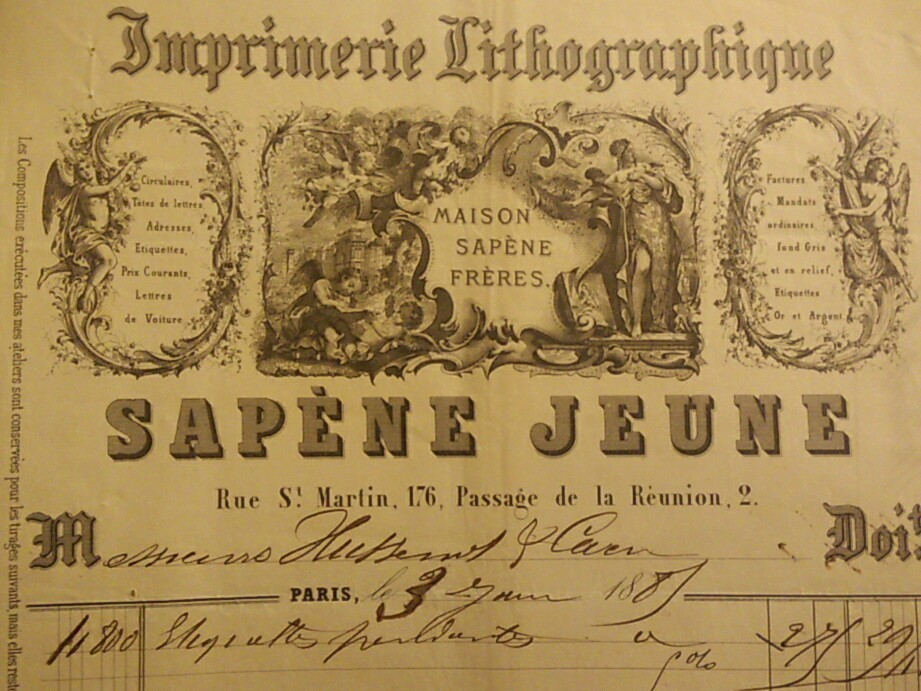 Imprimerie Lithographique
Circulaires,
Têtes de lettres
Adresses,
Etiquettes,
Prix Courants,
Lettres
de Voiture
MAISON
SAPÈNE
FRÈRES.
Factures
Mandats
ordinaires
fond Gris
et en relief,
Etiquettes
Or et Argent
Les Compositions exécutées dans mes ateliers sont conservées pour les tirages suivants, mais elles rest
SAPÈNE JEUNE
Rue St Martin, 176, Passage de la Réunion, 2.
Messieurs & Caen Doit
PARIS, le 3 188
11 800 Etiquettes pendantes a 2 7